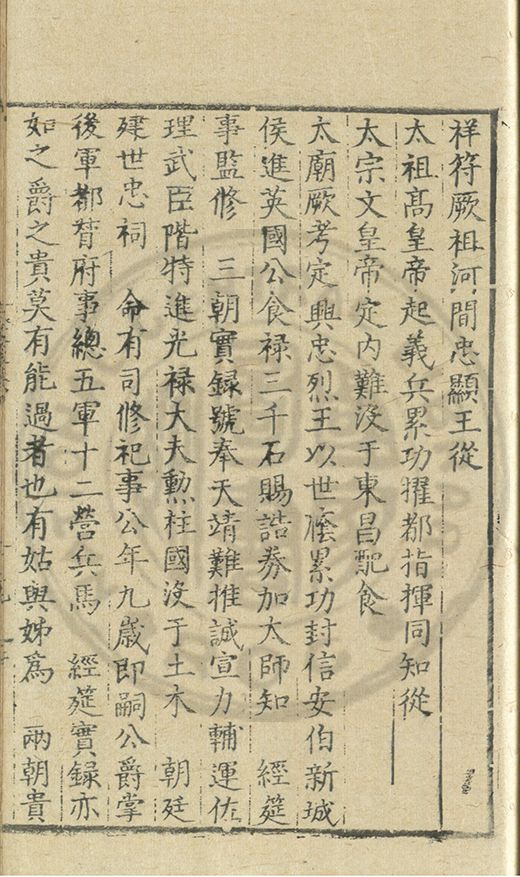 祥符厥祖河間忠顯王從
太祖高皇帝起義兵累功擢都指揮同知從
太宗文皇帝定內難沒于東昌配食
太廟厥考定興忠烈王以世廕累功封信安伯新城
侯進英國公食祿三千石賜誥券加太師知　經筵
事監修　三朝實録號奉天靖難推誠宣力輔運佐
理武臣階特進光祿大夫勲柱國沒于土木　朝廷
建世忠祠　命有司修祀事公年九歲即嗣公爵掌
後軍都督府事總五軍十二營兵馬　經筵實録亦
如之爵之貴莫有能過者也有姑與姊爲　兩朝貴